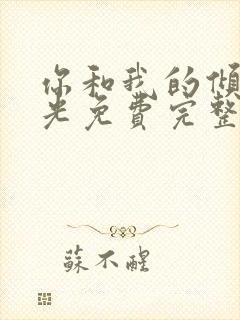 你和我的傾
光免費完整
蘇不醒